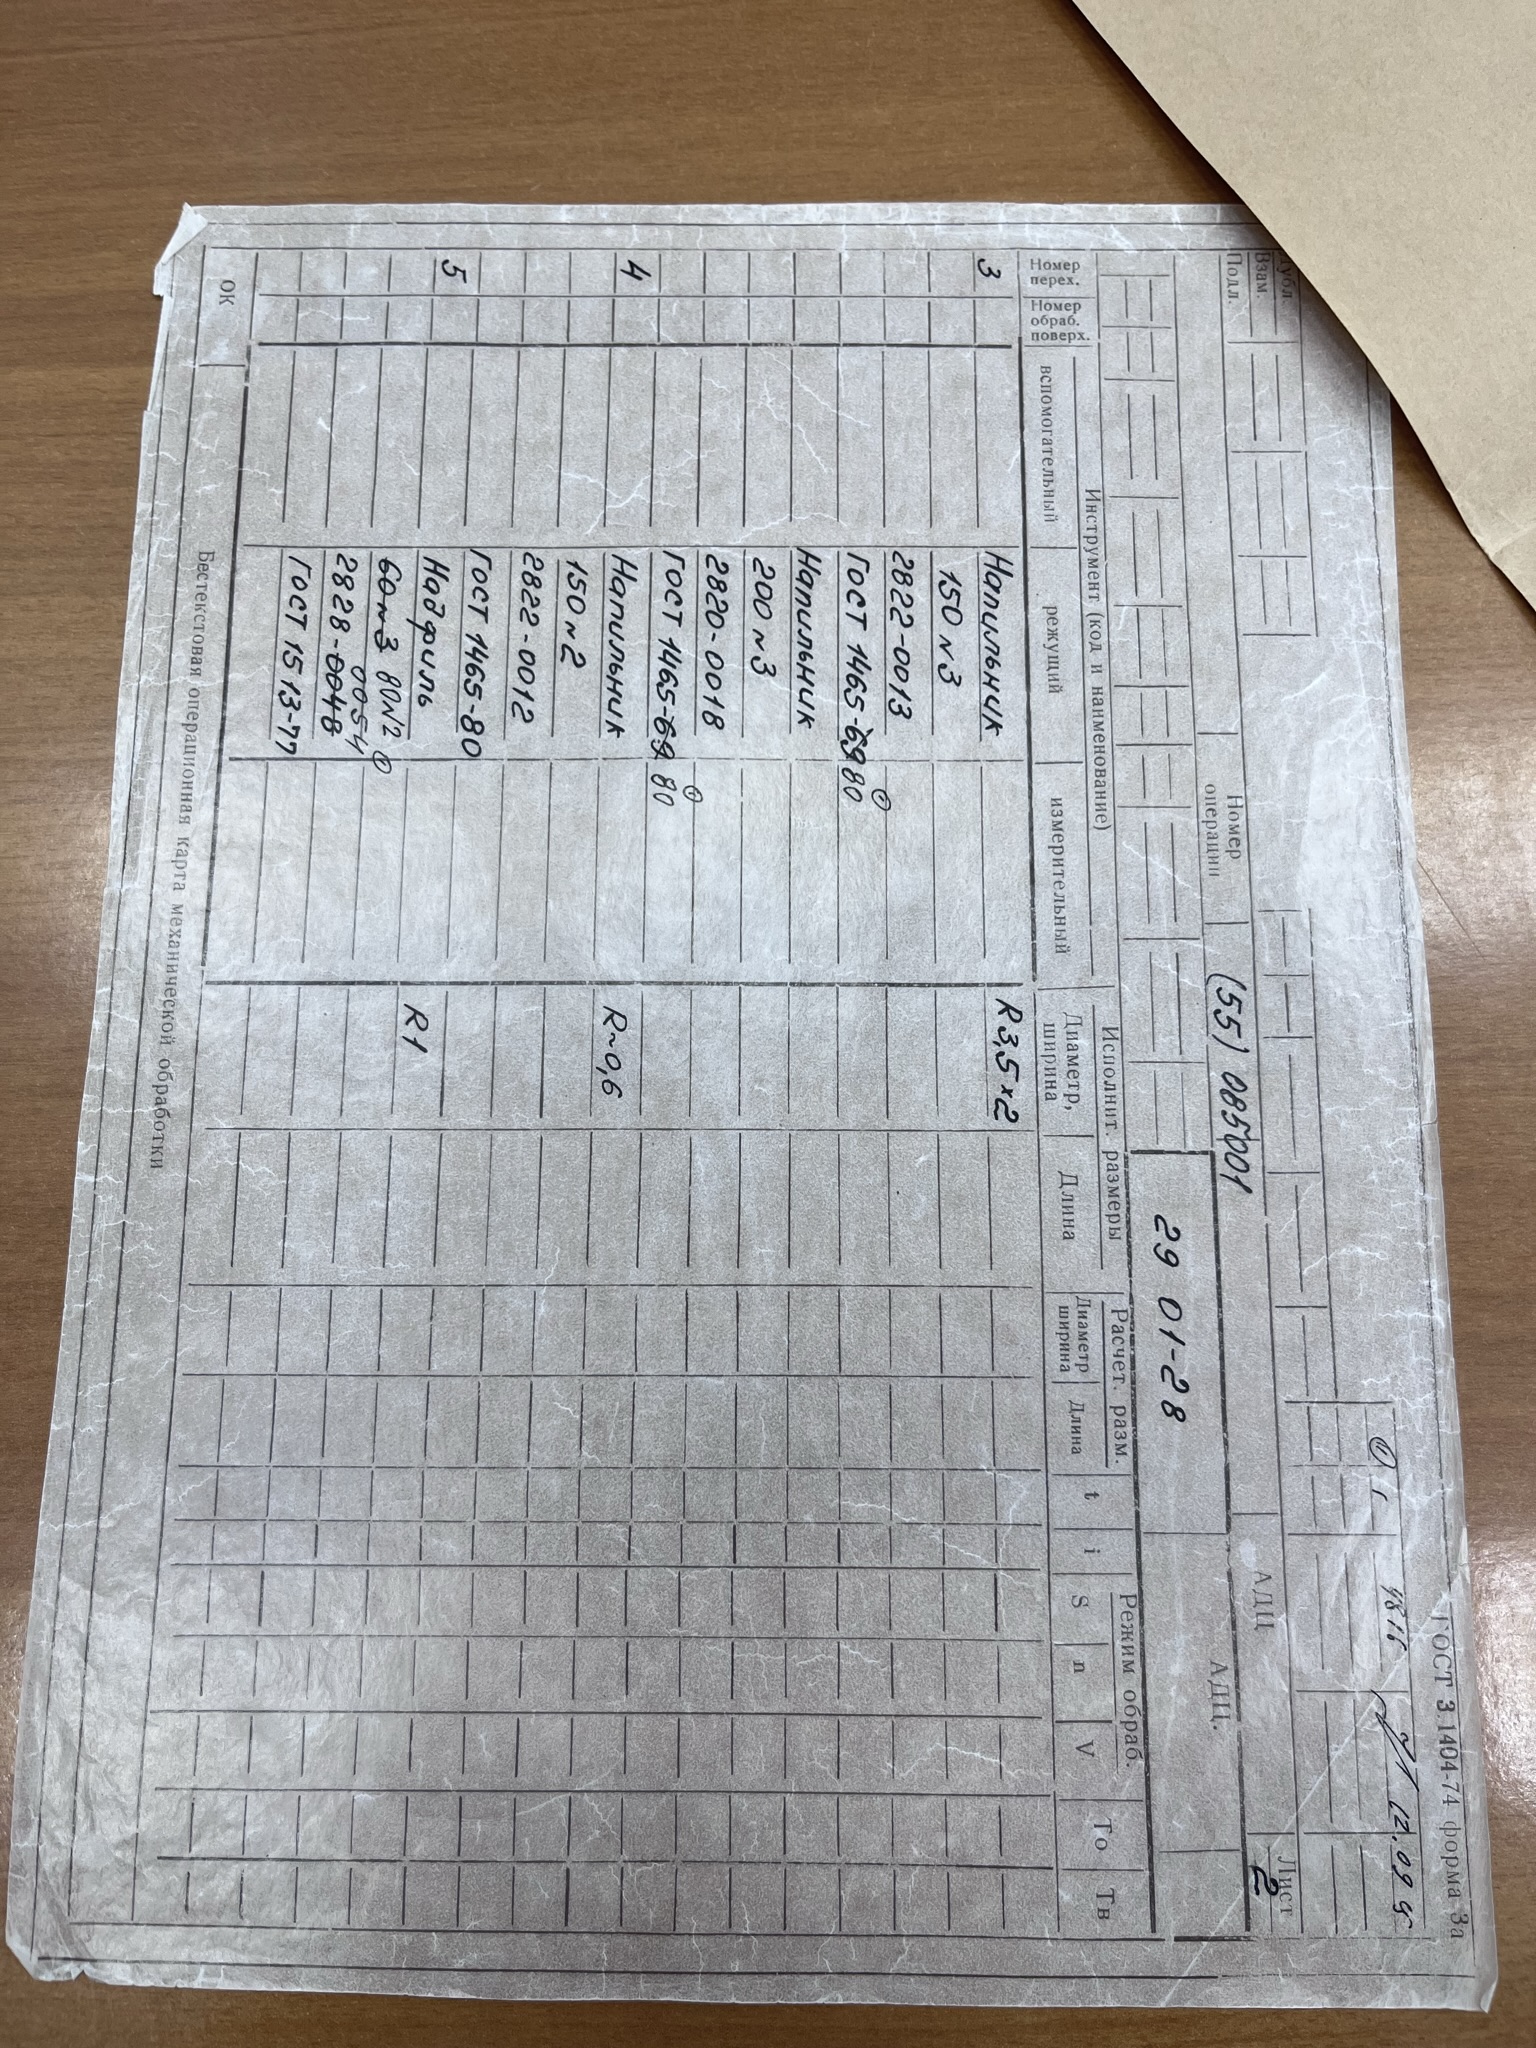 ГОСТ 3.1404-74 форма 3а
① 1 4816 12.09
Дубл.
Взам.
Подл.
АДЦ
Лист
2
Номер операции
(55) 085001
29 01-28
АДЦ.
Номер перех.
Номер обраб. поверх.
Инструмент (код и наименование)
вспомогательный
режущий
измерительный
Исполнит. размеры
Диаметр, ширина
Длина
Расчет. разм.
Диаметр ширина
Длина
t
i
Режим обраб.
S
n
V
То
Тв
3 Напильник R3,5×2
150 №3
2822-0013
①
ГОСТ 1465-69 80
Напильник
200 №3
2820-0018
①
ГОСТ 1465-69 80
4 Напильник R~0,6
150 №2
2822-0012
ГОСТ 1465-80
5 Надфиль R1
60 №3 80№2 ①
0054
2828-0048
ГОСТ 1513-77
ОК
Бестекстовая операционная карта механической обработки